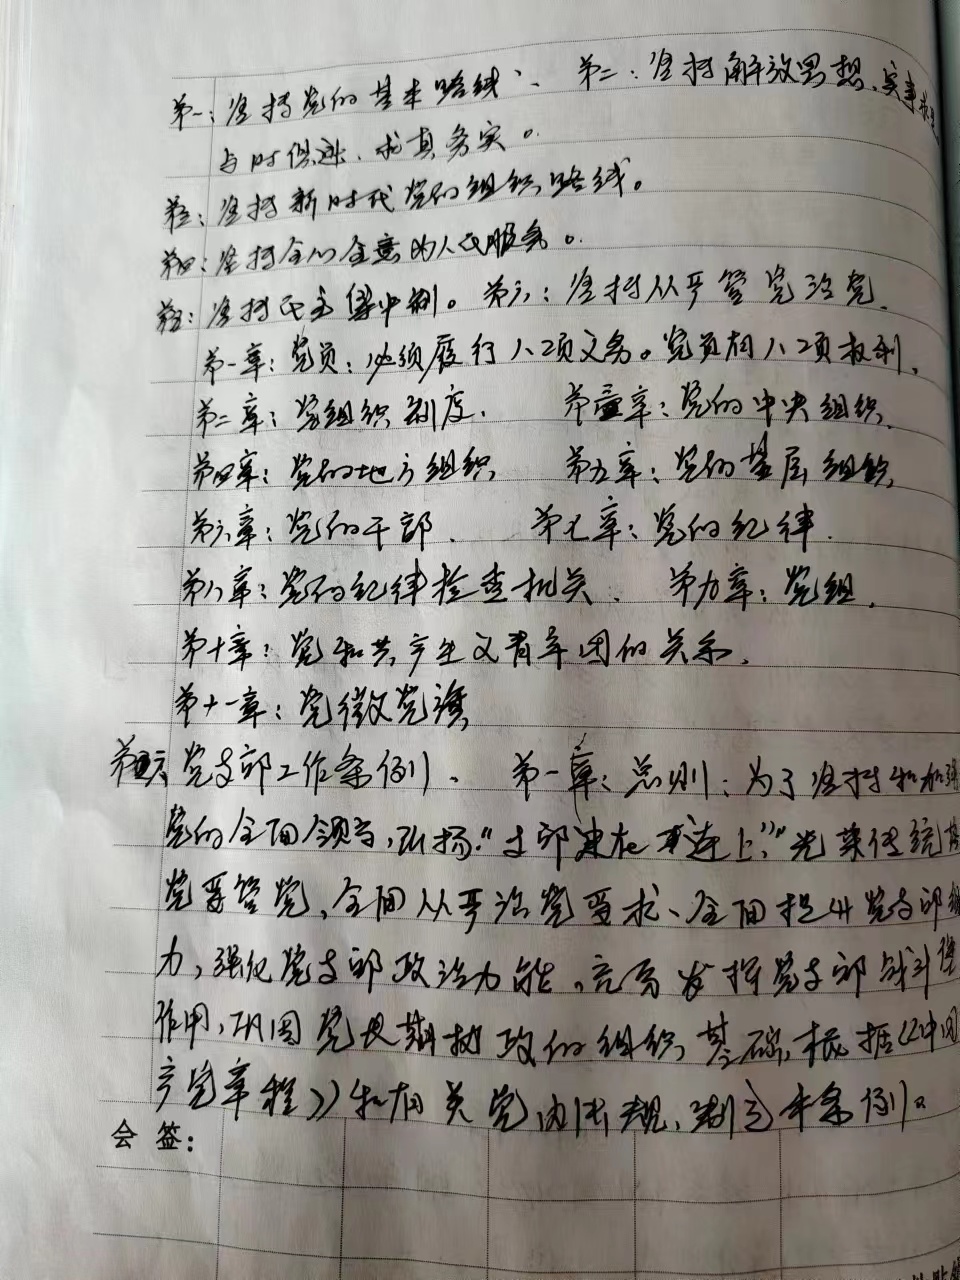 第一：坚持党的基本路线、第二：坚持解放思想、实事求是
与时俱进、求真务实。
第三：坚持新时代党的组织路线。
第四：坚持全心全意为人民服务。
第五：坚持民主集中制。第六：坚持从严管党治党.
第一章：党员：必须履行八项义务。党员有八项权利.
第二章：党组织制度. 第三章：党的中央组织.
第四章：党的地方组织 第五章：党的基层组织.
第六章：党的干部. 第七章：党的纪律.
第八章：党的纪律检查机关、 第九章：党组.
第十章：党和共产主义青年团的关系.
第十一章：党徽党旗
第六 党支部工作条例、 第一章：总则：为了坚持和加强
党的全面领导，弘扬“支部建在连上”光荣传统
党要管党，全面从严治党要求、全面提升党支部组
力，强化党支部政治功能，充分发挥党支部战斗堡
作用，巩固党长期执政的组织基础，根据《中国
产党章程》和有关党内法规，制定本条例。
会 签：